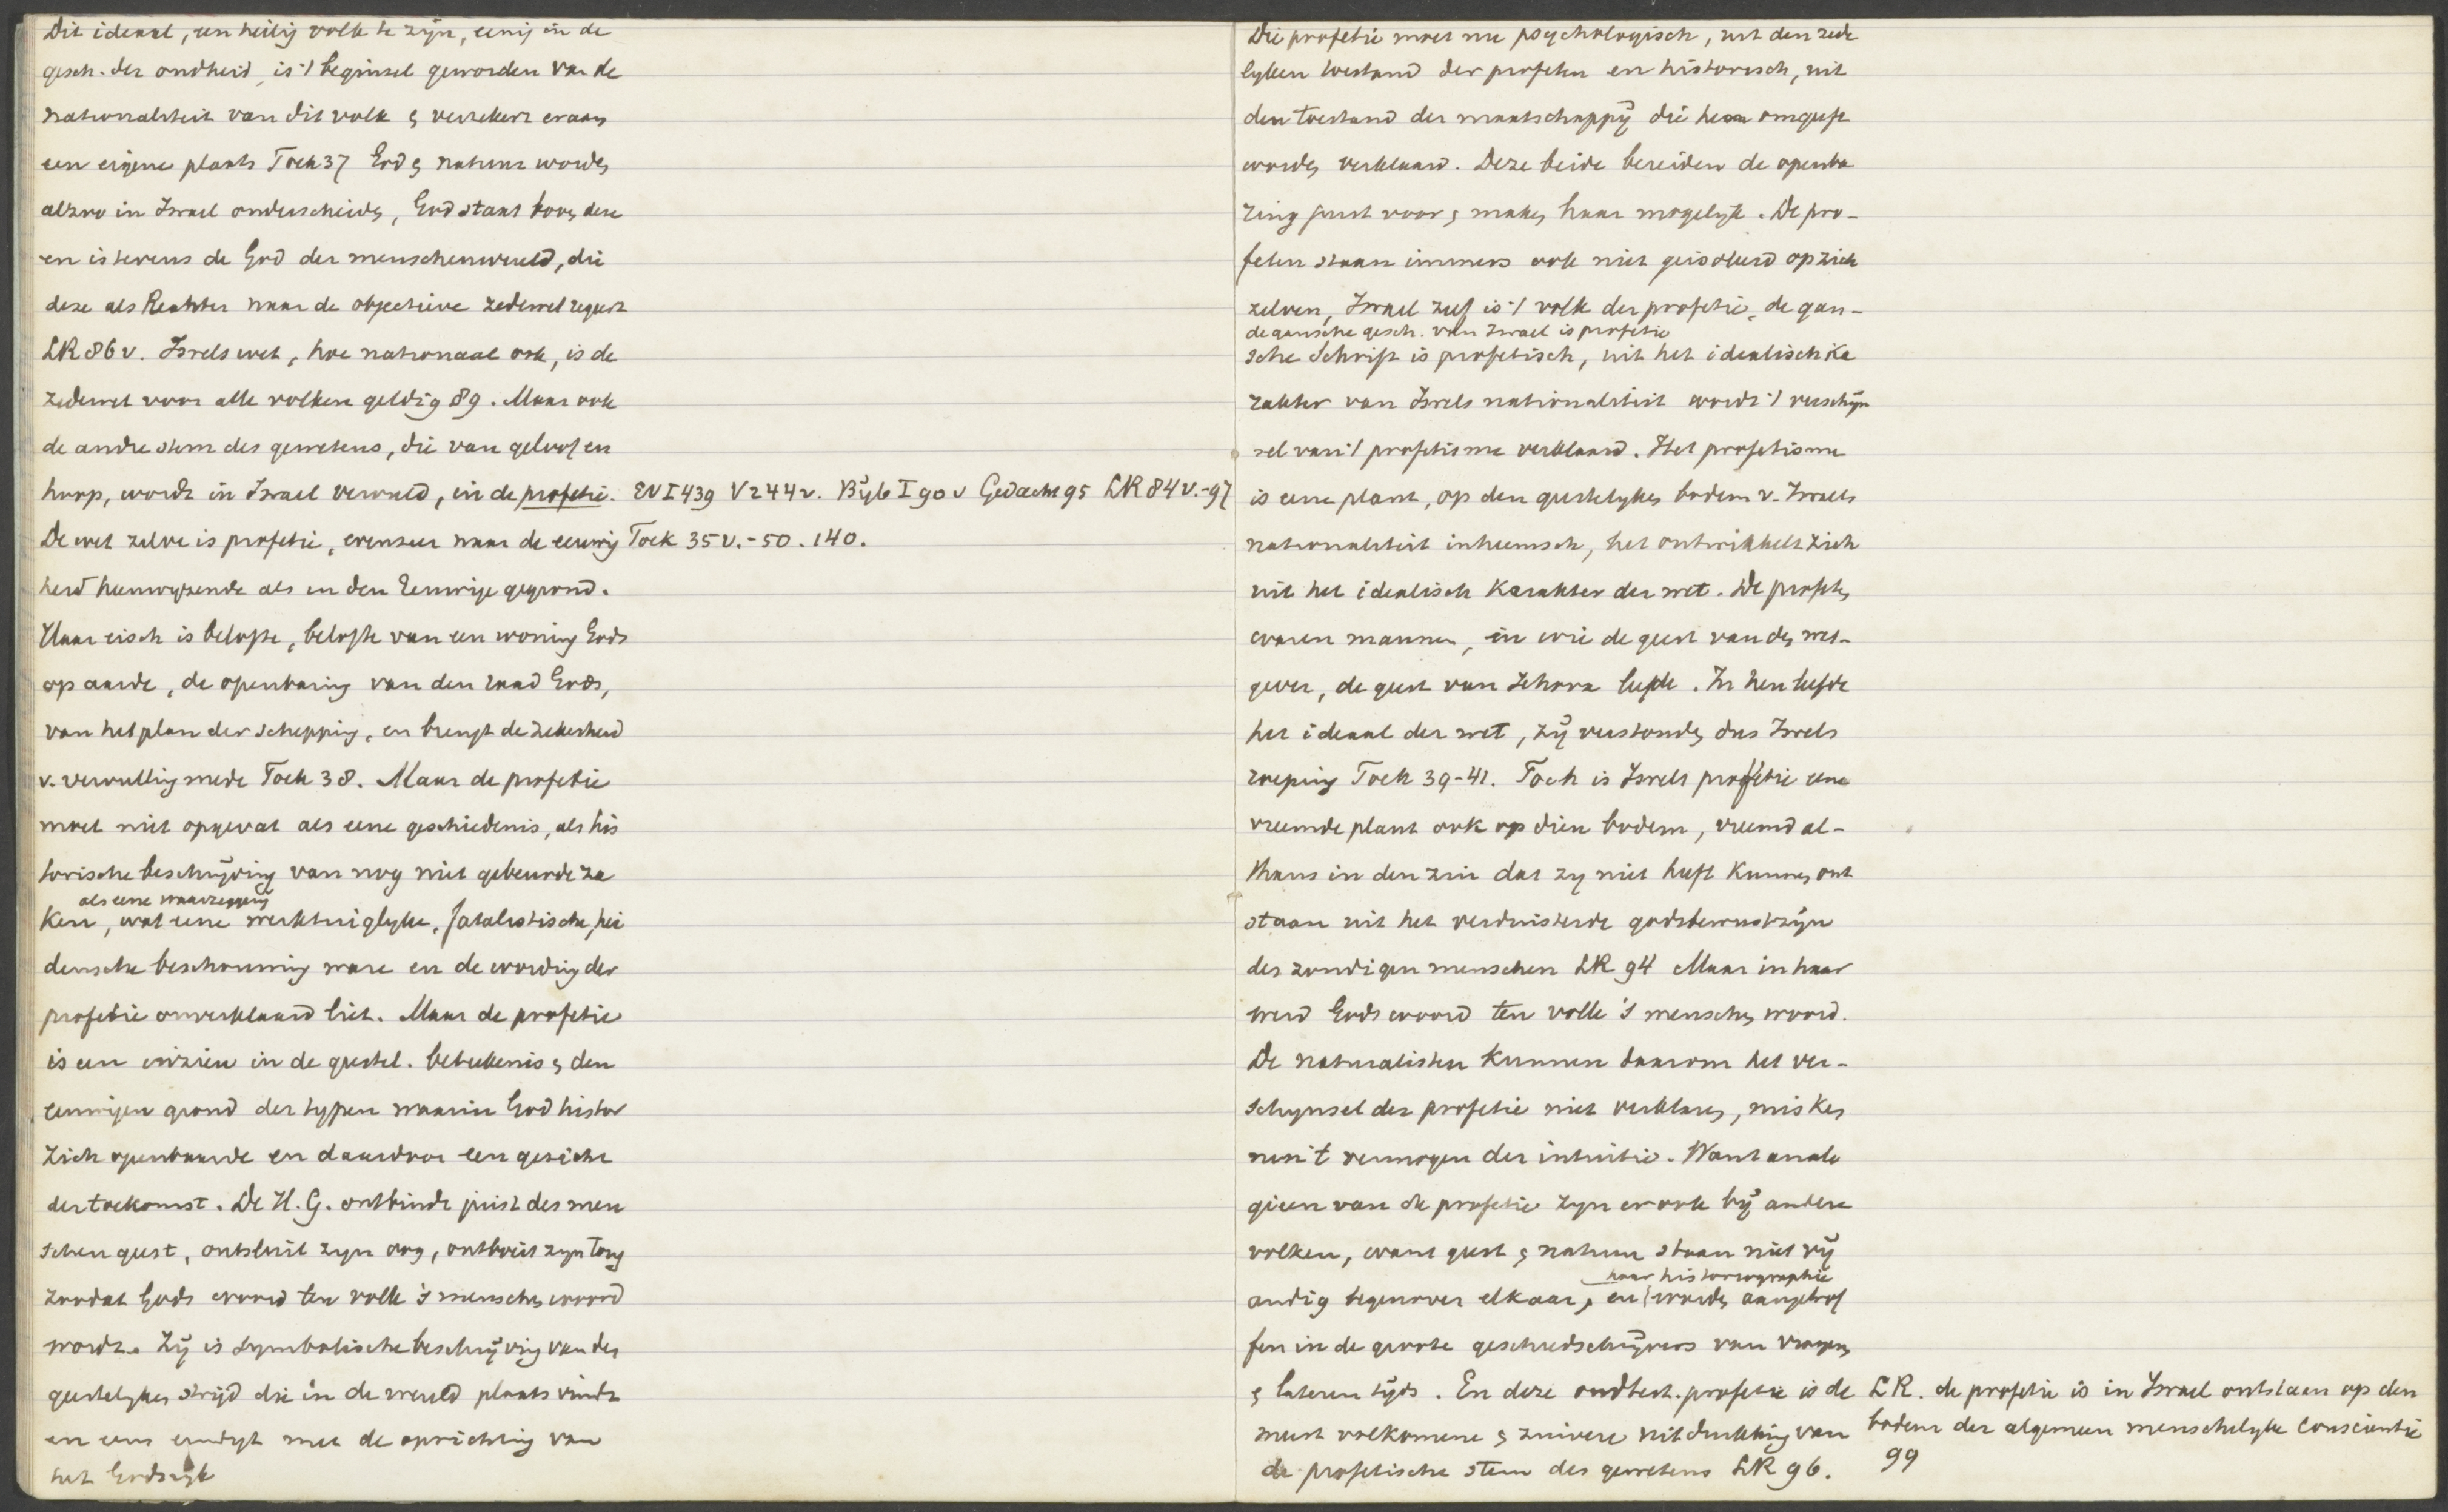 Dit ideaal, een heilig volk te zijn, eenig in de
gesch. der oudheid, is 't beginsel geworden van de
nationaliteit van dit volk & verzekert eraan
een eigene plaats Toek 37 God & natuur worden
alzoo in Israel onderscheiden, God staat boven deze
en is tevens de God der menschenwereld, die
deze als Rechter naar de objectieve zedewet regeert
LR 86 v. Isrels wet, hoe nationaal ook, is de
zedewet voor alle volken geldig 89. Maar ook
de andre stem des gewetens, die van geloof en
hoop, wordt in Israel vervuld, in de profetie. EV I 439 V 244 v. Bijb I 90 v Gedacht 95 LR 84 v.-97
De wet zelve is profetie, evenzeer naar de eeuwig Toek 35 v.-50. 140.
heid heenwyzende als in den Eeuwige gegrond.
Haar eisch is belofte, belofte van een woning Gods
op aarde, de openbaring van den raad Gods,
van het plan der schepping, en brengt de zekerheid
v. vervulling mede Toek 38. Maar de profetie
moet niet opgevat als eene geschiedenis, als his
torische beschrijving van nog niet gebeurde za
als eene waarzegging
ken, wat eene werktuiglyke, fatalistische, hei
densche beschouwing ware en de wording der
profetie onverklaard liet. Maar de profetie
is een inzien in de geestel. beteekenis & den
eeuwigen grond der typen waarin God histor
zich openbaarde en daardoor een gezicht
der toekomst. De H. G. ontbindt juist des men
schen geest, ontsluit zyn oog, ontboeit zyn tong
zoodat Gods woord ten volle 's menschen woord
wordt. Zij is symbolische beschrijving van den
geestelyken strijd die in de wereld plaats vindt
en eens eindigt met de oprichting van
het Godsryk
Die profetie moet nu psychologisch, uit den zede
lyken toestand der profeten en historisch, uit
den toestand der maatschappij die hen omgeeft
worden verklaard. Deze beide bereiden de openba
ring juist voor & maken haar mogelyk. De pro-
feten staan immers ook niet geisoleerd op zich
zelven, Israel zelf is 't volk der profetie, de gan-
de gansche gesch. van Israel is profetie
sche Schrift is profetisch, uit het idealisch ka
rakter van Isrels nationaliteit wordt 't verschijn
sel van 't profetisme verklaard. Het profetisme
is eene plant, op den geestelyken bodem v. Israels
nationaliteit inheemsch, het ontwikkelt zich
uit het idealisch karakter der wet. De profeten
waren mannen, in wie de geest van den wet-
gever, de geest van Jehova leefde. In hen leefde
het ideaal der wet, zij verstonden dus Isrels
roeping Toek 39-41. Toch is Isrels profetie eene
vreemde plant ook op dien bodem, vreemd al-
thans in den zin dat zy niet heeft kunnen ont
staan uit het verduisterde godsbewustzijn
des zondigen menschen LR 94 Maar in haar
werd Gods woord ten volle 's menschen woord.
De naturalisten kunnen daarom het ver-
schynsel der profetie niet verklaren, misken
nen 't vermogen der intuitie. Want analo
gieen van de profetie zyn er ook bij andere
volken, want geest & natuur staan niet vij
haar historiographie
andig tegenover elkaar, en worden aangetrof
fen in de groote geschiedschrijvers van vroegen
& lateren tijds. En deze oudtest. profetie is de LR. de profetie is in Israel ontstaan op den
meest volkomene & zuivere uitdrukking van bodem der algemeen menschelyke conscientie
de profetische stem des gewetens LR 96. 99